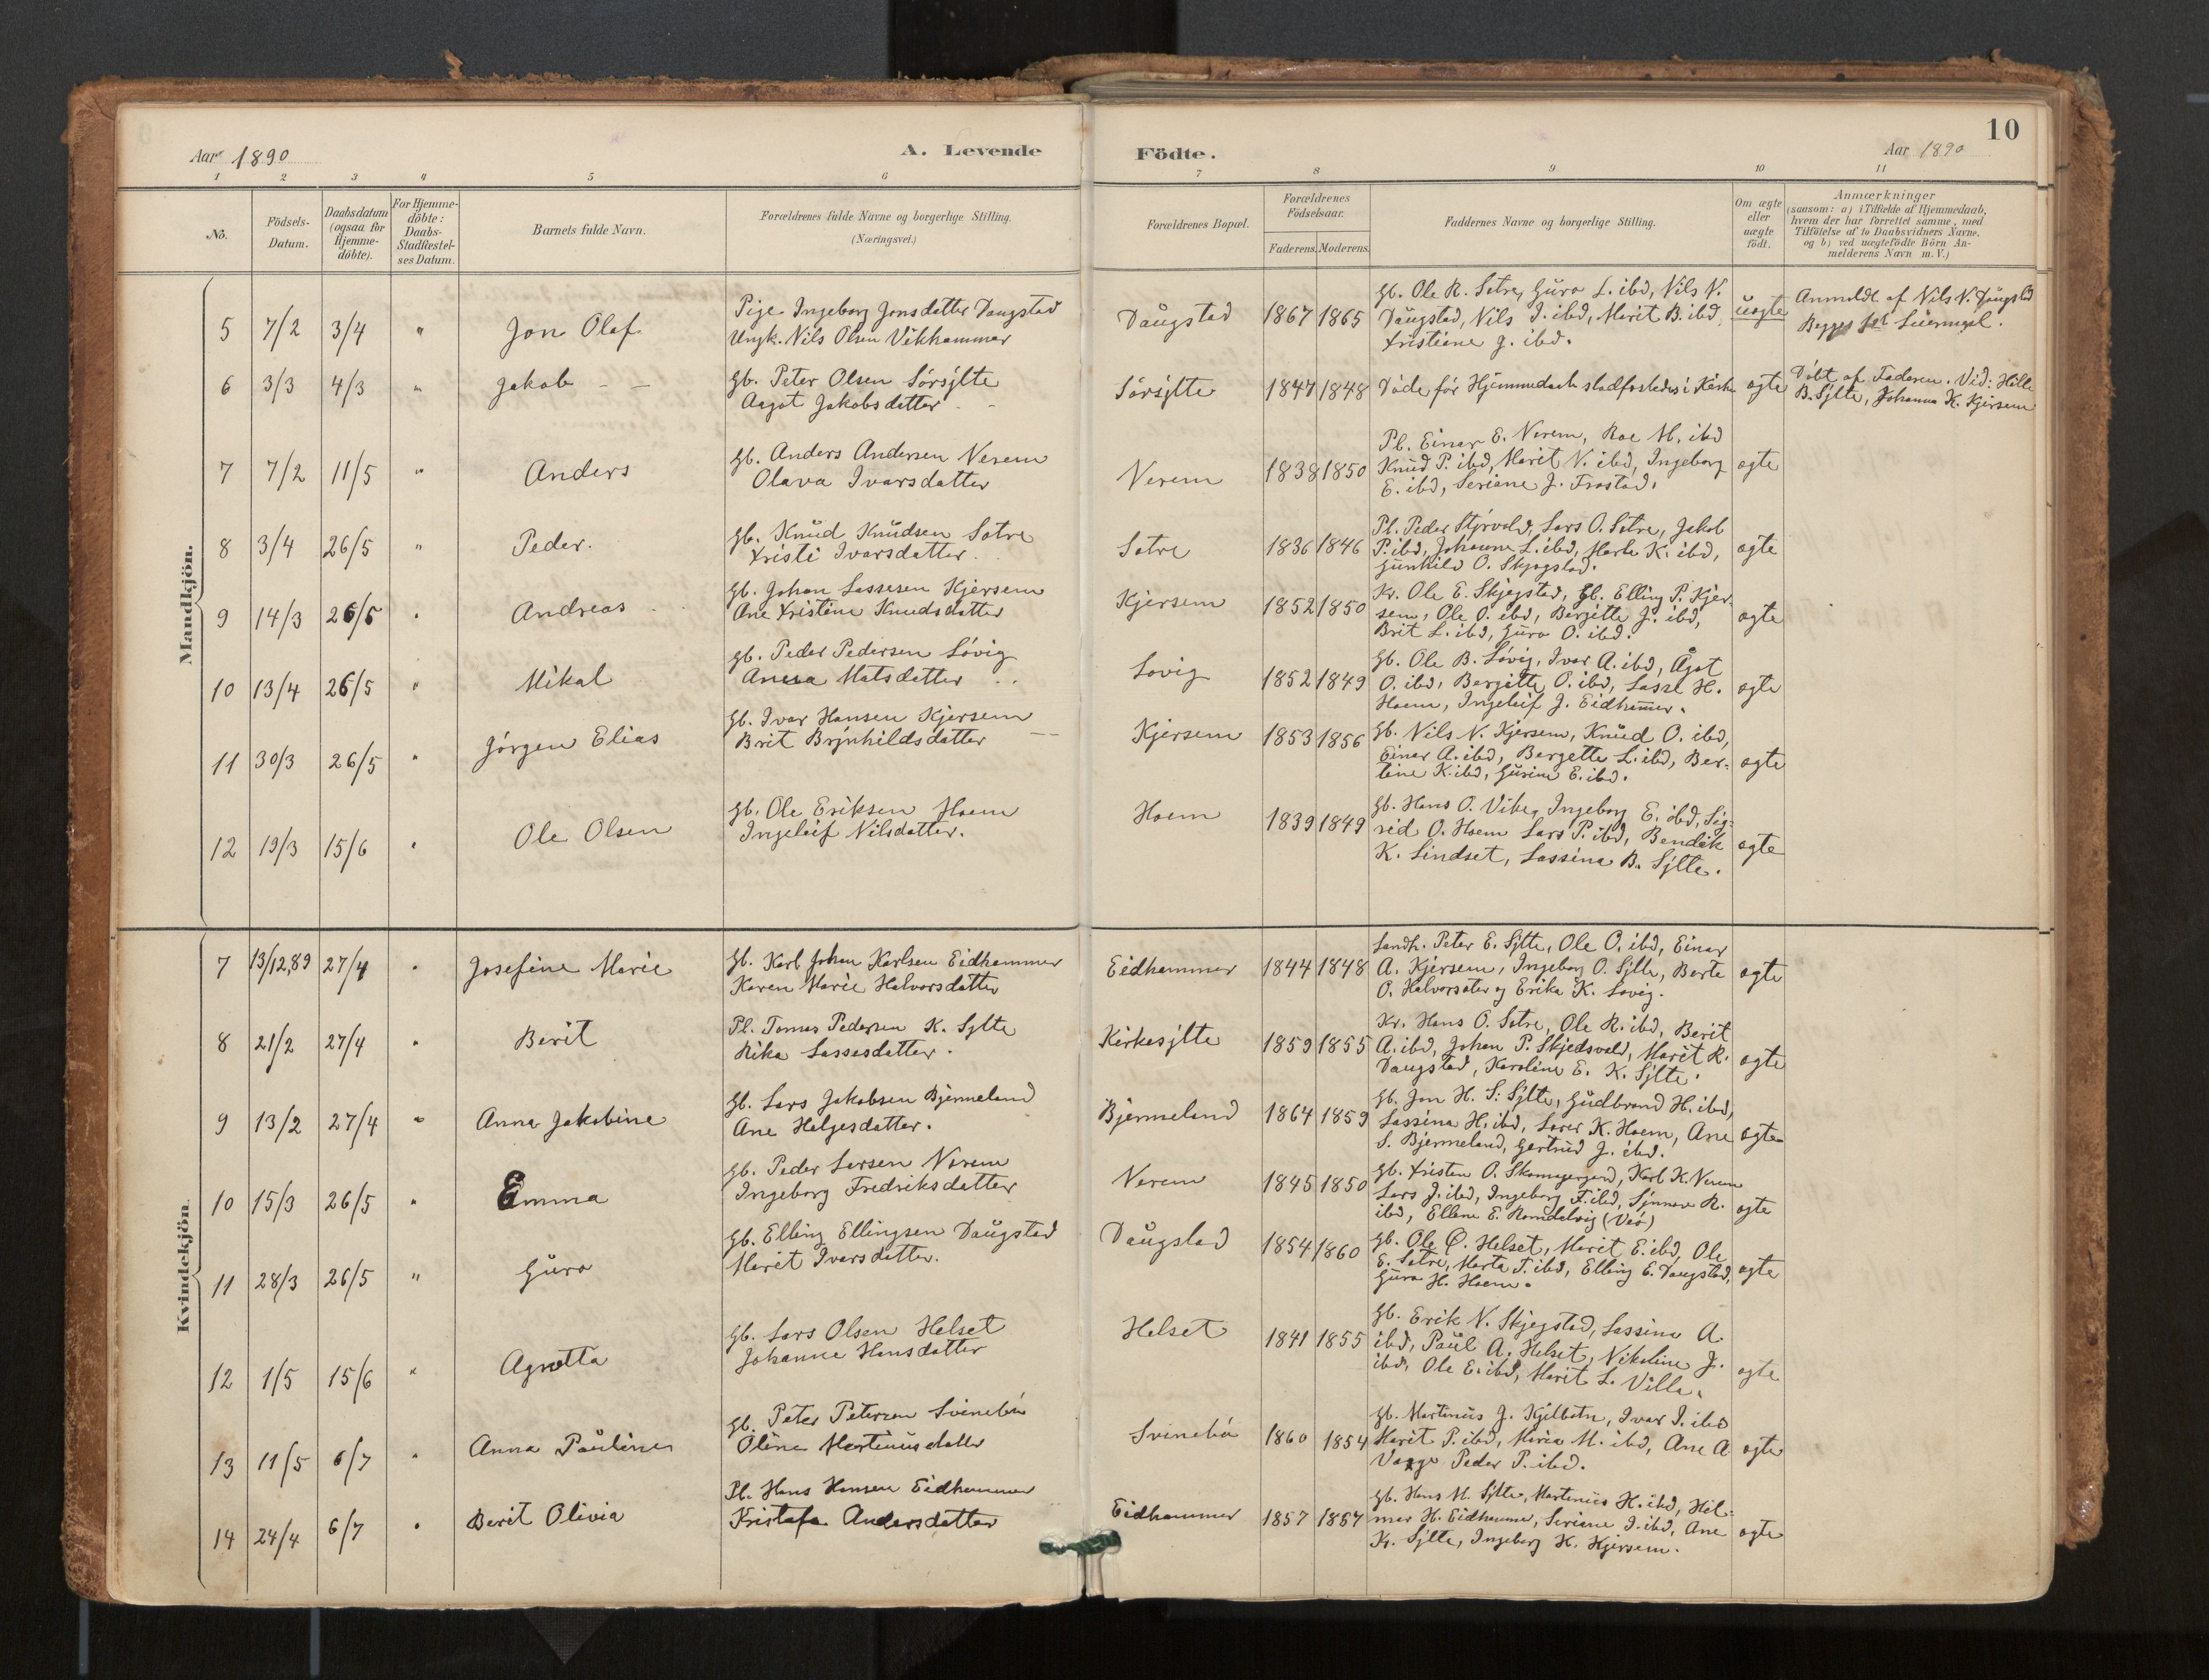 10
Aar 1890
A. Levende
Födte.
Aar 1890
1 2 3 4 5 6 7 8 9 10 11
No.
Födsels-
Datum.
Daabsdatum
(ogsaa for
Hjemme-
döbte).
For Hjemme-
döbte:
Daabs-
Stadfæstel-
ses Datum.
Barnets fulde Navn.
Forældrenes fulde Navne og borgerlige Stilling.
(Næringsvei.)
Forældrenes Bopæl.
Forældrenes
Födselsaar.
Faderens. Moderens.
Faddernes Navne og borgerlige Stilling.
Om ægte
eller
uægte
födt.
Anmærkninger
(saasom: a) i Tilfælde af Hjemmedaab,
hvem der har forrettet samme, med
Tilföielse af to Daabsvidners Navne,
og b) ved uægtefödte Börn An-
melderens Navn m. V.)
Mandkjön.
5 7/2 3/4 " Jon Olaf
Pige Ingeborg Jonsdatter Daugstad
Ungk. Nils Olsen Vikhammer
Daugstad 1867 1865
Gb. Ole R. Setre, Guro L. ibd, Nils N.
Daugstad, Nils I. ibd, Marit B. ibd,
Kristiane J. ibd.
uegte
Anmeldt af Nils N. Daugstad
Begges Leiermaal.
6 3/3 4/3 " Jakob
Gb. Peter Olsen Sörsylte
Aagot Jakobsdatter
Sörsylte 1847 1848
Döde för Hjemmedaab stadfestedes i Kirke
egte
Döbt af Faderen. Vid: Hille
B. Sylte, Johanna K. Kjersem
7 7/2 11/5 " Anders
Gb. Anders Andersen Nerem
Olava Ivarsdatter
Nerem 1838 1850
Pl. Einar E. Nerem, Roe M. ibd
Knud P. ibd, Marit N. ibd, Ingeborg
E. ibd, Seriane J. Frostad.
egte
8 3/4 26/5 " Peder.
Gb. Knud Knudsen Setre
Kristi Ivarsdatter
Setre 1836 1846
Pl. Peder Stjrvold, Lars O. Setre, Jakob
P. ibd, Johanne L. ibd, Marte K. ibd,
Gunhild O. Skjegstad.
egte
9 14/3 26/5 " Andreas
Gb. Johan Lassesen Kjersem
Ane Kristine Knudsdatter
Kjersem 1852 1850
Kr. Ole E. Skjegstad, Gb. Elling P. Kjer-
sem, Ole O. ibd, Bergitte J. ibd,
Brit L. ibd, Guro O. ibd.
egte
10 13/4 26/5 " Mikal
Gb. Peder Pedersen Lövig
Anna Matsdatter
Lovig 1852 1849
Gb. Ole B. Lövig, Ivar A. ibd, Ågot
O. ibd, Bergitte O. ibd, Lasse H.
Hoem, Ingeleif J. Eidhammer.
egte
11 30/3 26/5 " Jörgen Elias
Gb. Ivar Hansen Kjersem
Brit Brynhildsdatter
Kjersem 1853 1856
Gb. Nils N. Kjersem, Knud O. ibd,
Einar A. ibd, Bergette L. ibd, Ber-
tine K. ibd, Gurine E. ibd.
egte
12 19/3 15/6 " Ole Olsen
Gb. Ole Eriksen Hoem
Ingeleif Nilsdatter.
Hoem 1839 1849
Gb. Hans O. Vike, Ingeborg E. ibd, Sig-
rid O. Hoem Lars P. ibd, Bendik
K. Lindset, Lassina B. Sylte.
egte
Kvindekjön.
7 13/12,89 27/4 " Josefine Marie
Gb. Karl Johan Karlsen Eidhammer
Karen Marie Halvorsdatter
Eidhammer 1844 1848
Landh. Peter E. Sylte, Ole O. ibd, Einar
A. Kjersem, Ingeborg O. Sylte, Berte
O. Halvorsæter og Erika K. Lovig.
egte
8 21/2 27/4 " Berit
Pl. Tomas Pedersen K. Sylte
Rika Lassesdatter.
Kirkesylte 1859 1855
Kr. Hans O. Setre, Ole R. ibd, Berit
A. ibd, Johan P. Skjedsvold, Marit R.
Daugstad, Karoline E. K. Sylte.
egte
9 13/2 27/4 " Anna Jakobine
Gb. Lars Jakobsen Bjermeland
Ane Helgesdatter.
Bjermeland 1864 1859
Gb. Jon H. S. Sylte, Gudbrand H. ibd,
Lassina H. ibd, Lars K. Hoem, Ane
S. Bjermeland, Gertrud J. ibd.
egte
10 15/3 26/5 " Emma
Gb. Peder Larsen Nerem
Ingeborg Fredriksdatter
Nerem 1845 1850
Gb. Kristen O. Karl K. Nerem
Lars J. ibd, Ingeborg T. ibd, Synnøve R.
ibd, Ellene E. Romdalsvig (Veö)
egte
11 28/3 26/5 " Guro
Gb. Elling Ellingsen Daugstad
Marit Ivarsdatter.
Daugstad 1854 1860
Gb. Ole O. Helset, Marit E. ibd, Ole
E. Setre, Marta T. ibd, Elling E. Daugstad,
Guro H. Hoem.
egte
12 1/5 15/6 " Agnetta
Gb. Lars Olsen Helset
Johanne Hansdatter
Helset 1841 1855
Gb. Erik N. Skjegstad, Lassina A.
ibd, Paul A. Helset, Nikoline J.
ibd, Ole E. ibd, Marit L. Villa.
egte
13 11/5 6/7 " Anna Pauline
Gb. Peter Petersen Svinebö
Oline Martinusdatter
Svinebö 1860 1854
Gb. Martinus J. Kjelbotn, Ivar I. ibd
Marit P. ibd, Maria M. ibd, Ane A
Vaage Peder P. ibd.
egte
14 24/4 6/7 " Berit Olivia
Pl. Hans Hansen Eidhammer
Kristafa Andersdatter
Eidhammer 1857 1867
Gb. Hans M. Sylte, Martinus H. ibd, Hel-
mer H. Eidhammer, Seriane I. ibd, Ane
K. Sylte, Ingeborg K. Kjersem.
egte